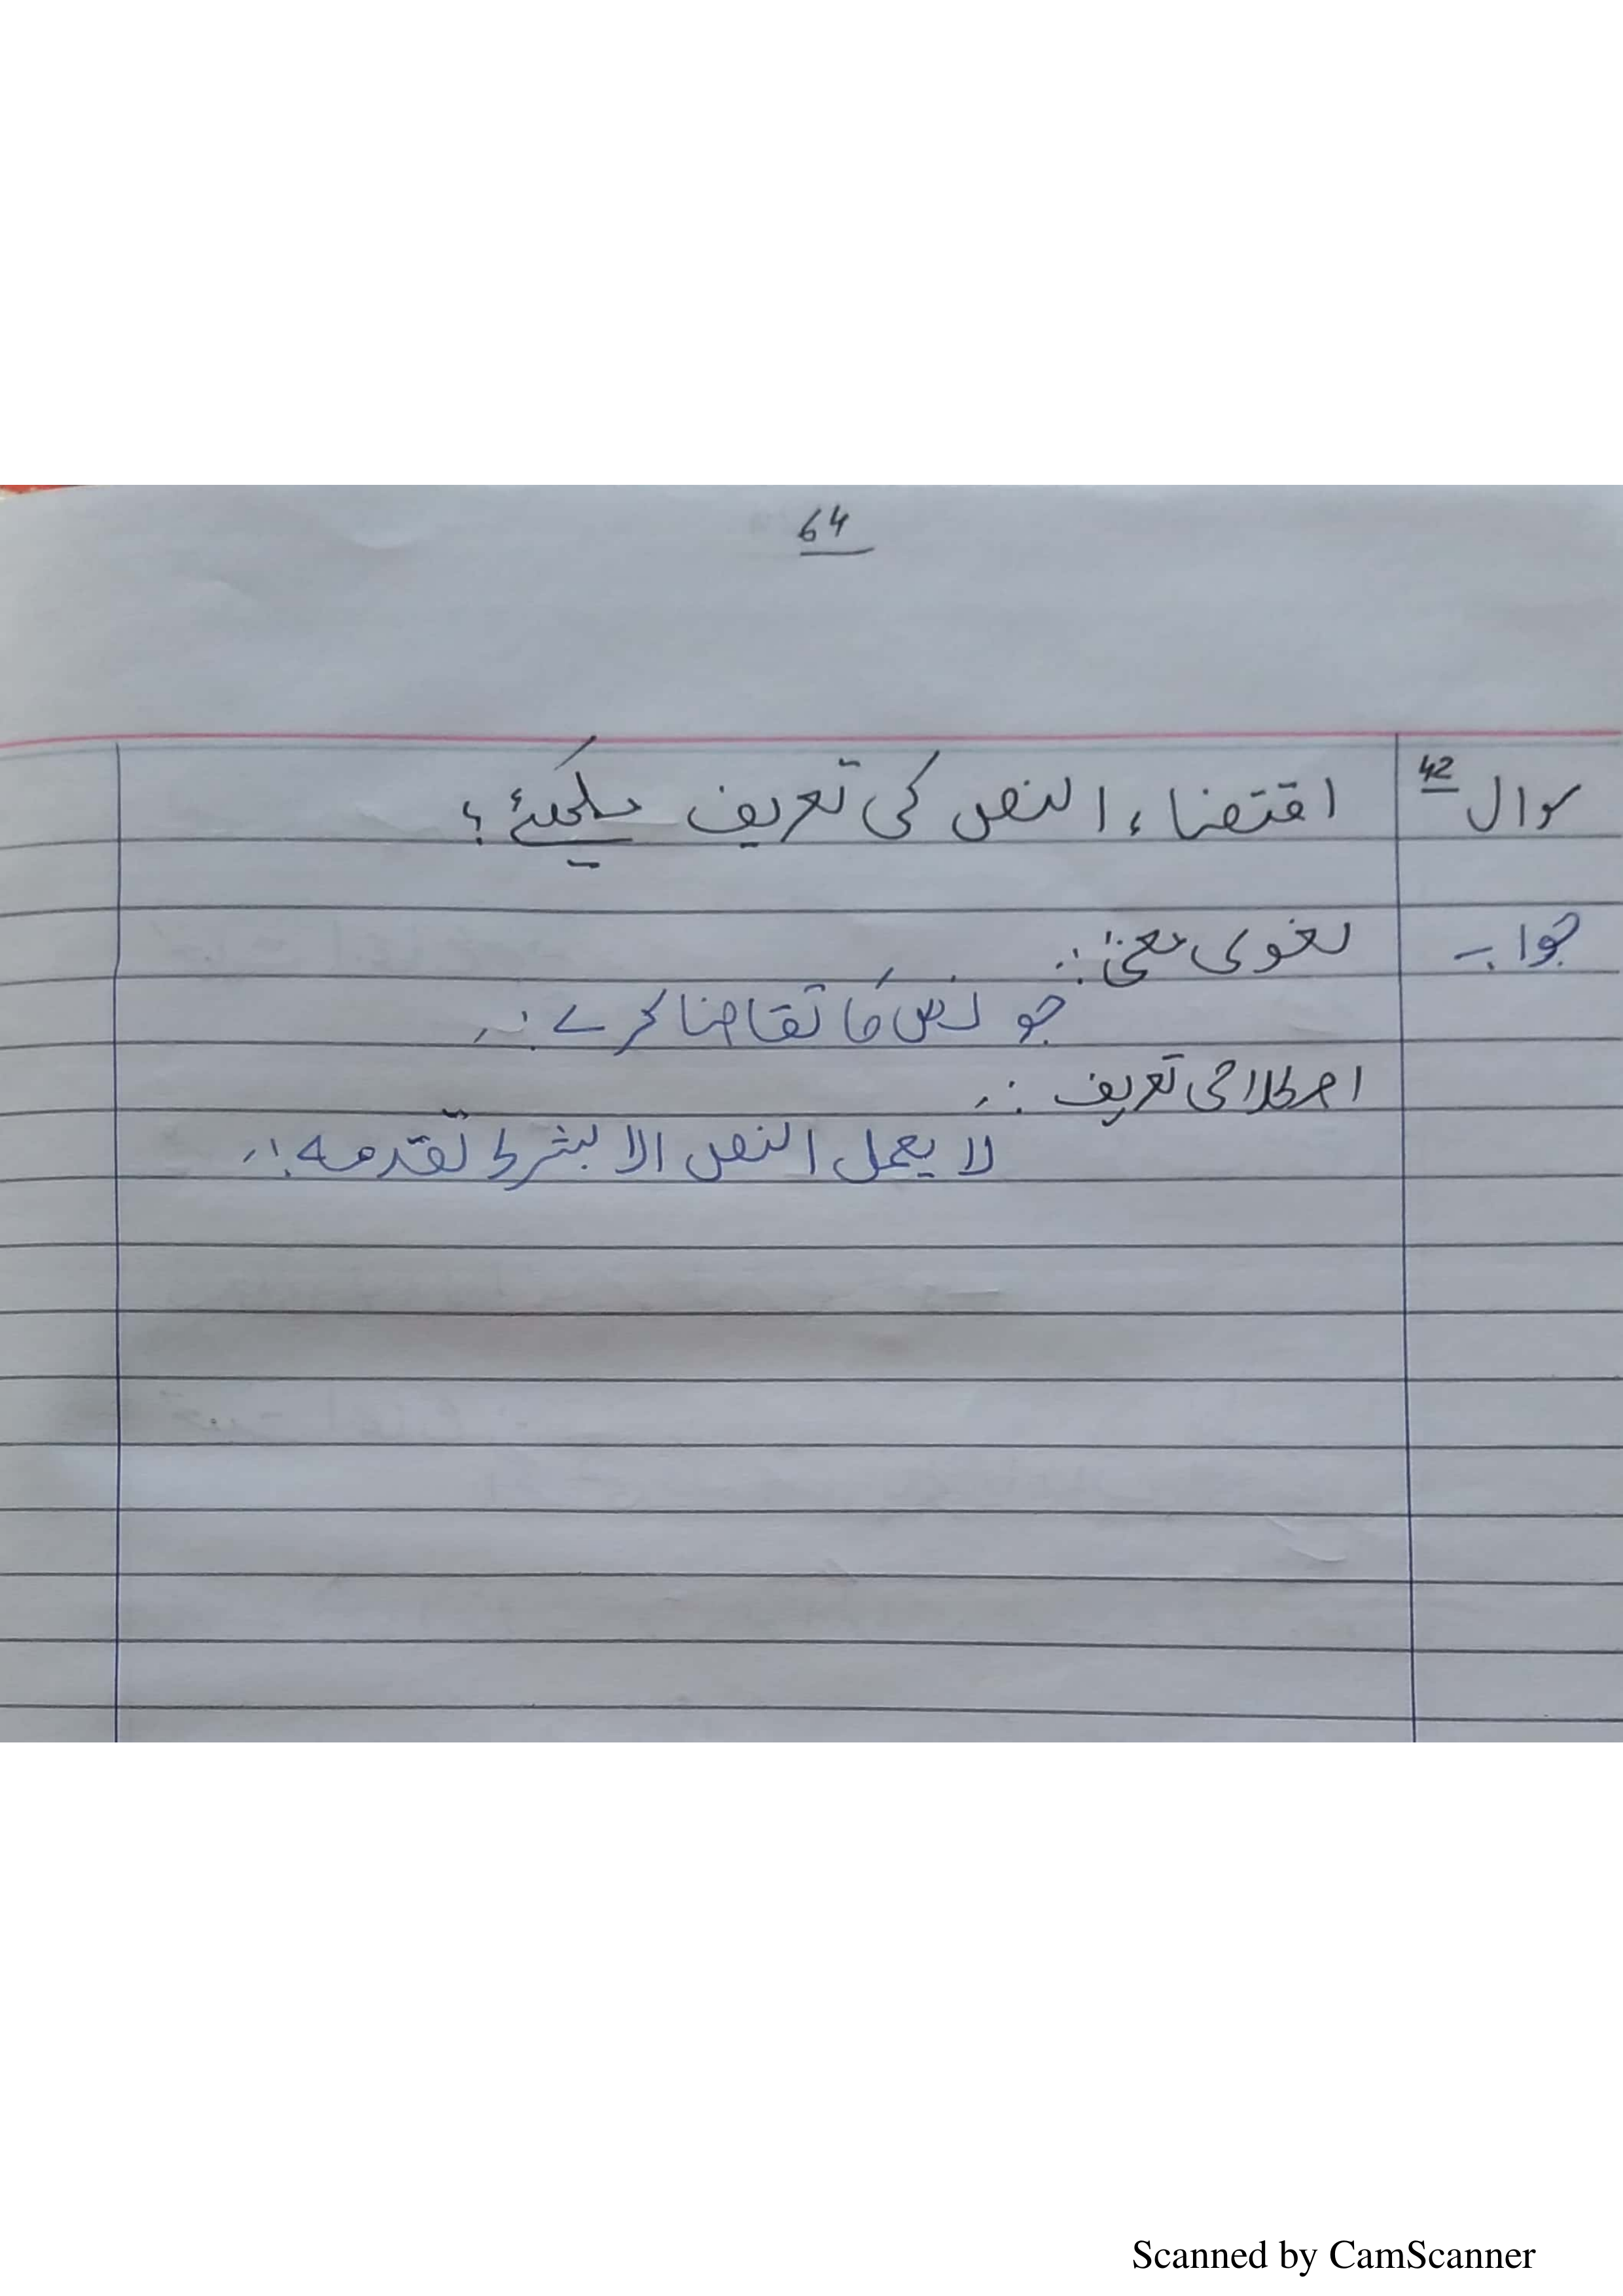 64
سوال 42 اقتضاء النص کی تعریف کیجئے؟
جواب۔ لغوی معنیٰ:۔
جو نص کا تقاضا کرے:۔
اصطلاحی تعریف:۔
لا یعمل النص الا بشرط تقدمہ:۔
Scanned by CamScanner